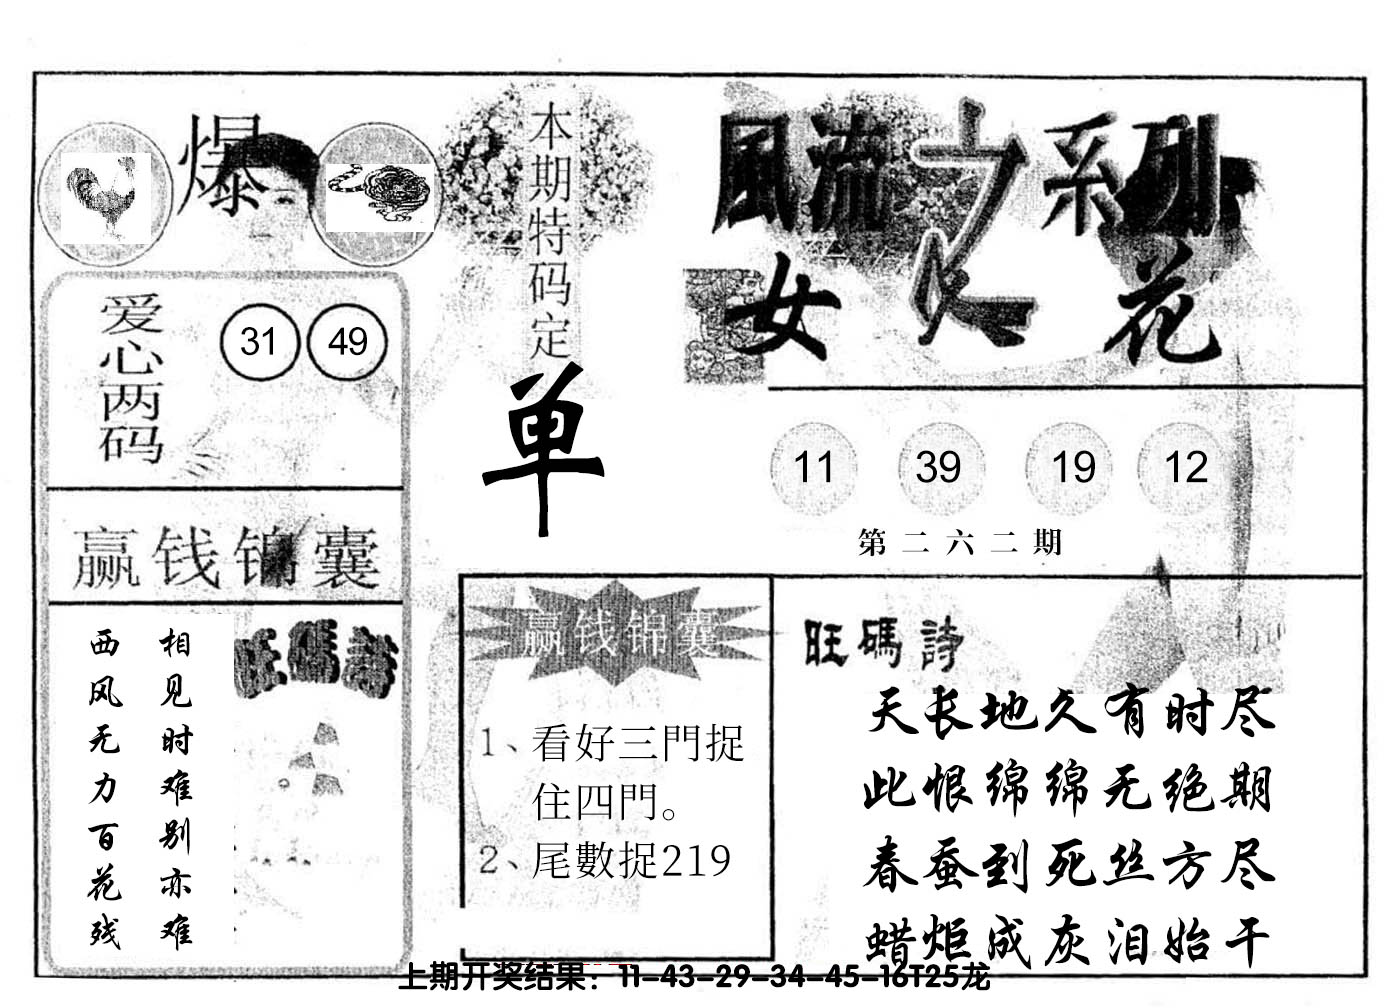 爆
本期特码定
单
風流之系列
女人花
爱心两码
31 49
11 39 19 12
第二六二期
赢钱锦囊
相见时难别亦难
西风无力百花残
旺碼詩
赢钱锦囊
1、看好三門捉
住四門。
2、尾數捉219
旺碼詩
天长地久有时尽
此恨绵绵无绝期
春蚕到死丝方尽
蜡炬成灰泪始干
上期开奖结果：11-43-29-34-45-16T25龙